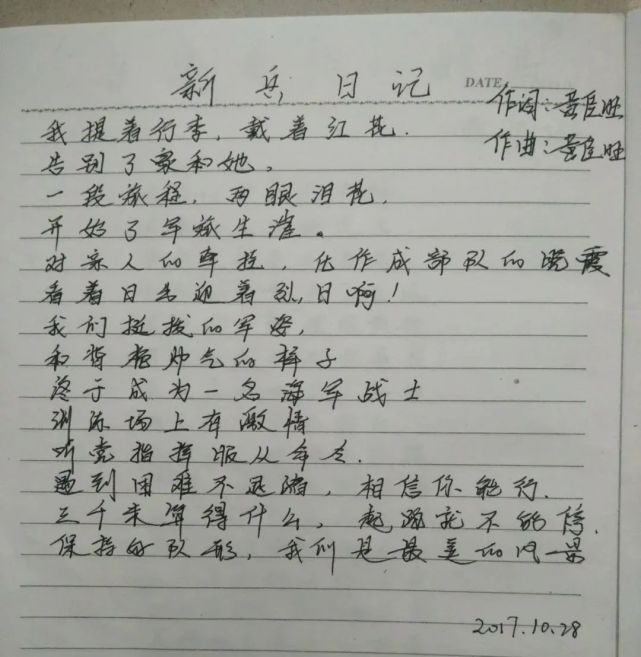 新兵日记
DATE
作词：黄臣旺
作曲：黄臣旺
我提着行李，戴着红花.
告别了家和她。
一段旅程，两眼泪花，
开始了军旅生涯。
对亲人的牵挂，化作成部队的晚霞
看着日出迎着烈日啊！
我们挺拔的军姿，
和背枪帅气的样子
终于成为一名海军战士
训练场上有激情
听党指挥服从命令.
遇到困难不退缩，相信你能行.
三千米算得什么，起跑就不能停.
保持好队形，我们是最美的风景
2017.10.28